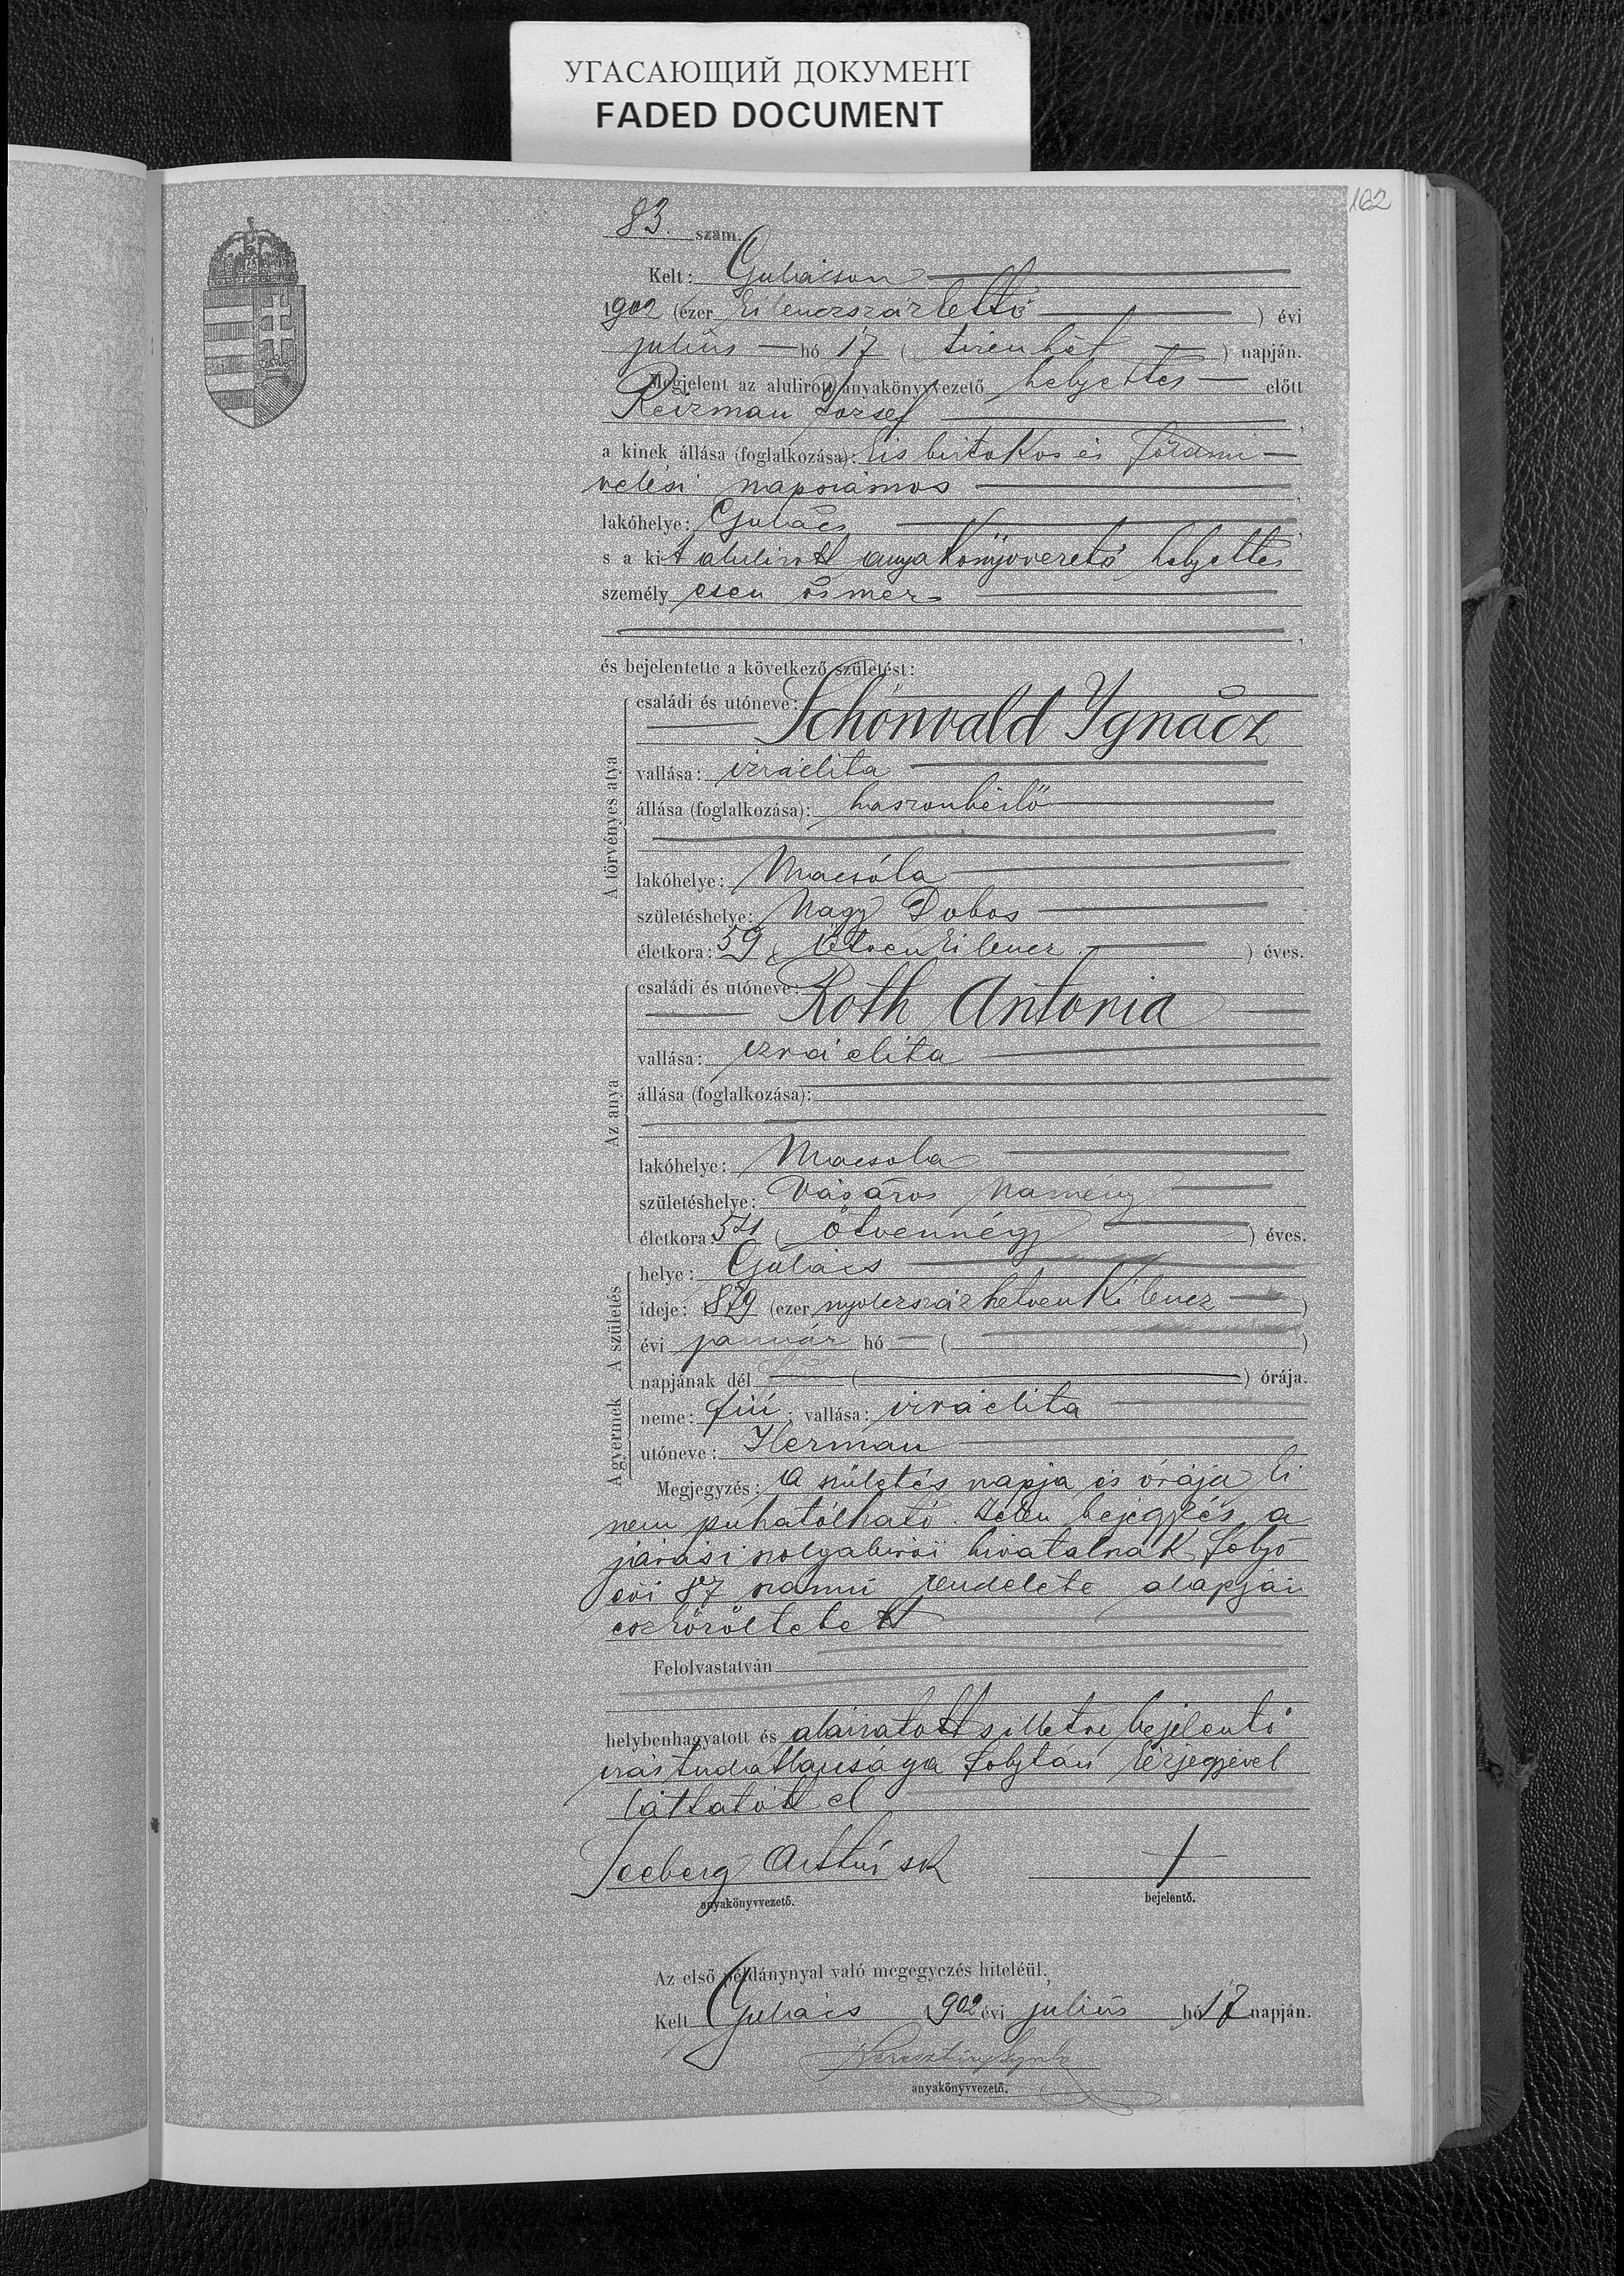 УГАСАЮЩИЙ ДОКУМЕНТ
FADED DOCUMENT
162
83. szám.
Kelt: Gulácson
1902 (ezer kilenczszázkettő) évi
julius hó 17 (tizenhét) napján.
Megjelent az alulirott anyakönyvvezető helyettes előtt
Reizman József
a kinek állása (foglalkozása): kis birtokos és földmi-
velési napszámos
lakóhelye: Gulács
s a kit alulirott anyakönyvvezető helyettes
személyesen ösmer
és bejelentette a következő születést:
A törvényes atya
családi és utóneve:
Schönvald Ignácz
vallása: izráelita
állása (foglalkozása): haszonbérlő
lakóhelye: Macsóla
születéshelye: Nagy Dobos
életkora: 59 (ötvenkilencz) éves.
Az anya
családi és utóneve:
Roth Antonia
vallása: izráelita
állása (foglalkozása):
lakóhelye: Macsola
születéshelye: Vásáros Namény
életkora: 54 (ötvennégy) éves.
A születés
helye: Gulács
ideje: 879 (ezer nyolczszázhetvenkilencz)
évi január hó — ( )
napjának dél ( ) órája.
A gyermek
neme: fiú; vallása: izráelita
utóneve: Herman
Megjegyzés: A születés napja és órája ki
nem puhatólható. Jelen bejegyzés a
járási szolgabirói hivatalnak folyó
évi 87 számú rendelete alapján
eszközöltetett
Felolvastatván
helybenhagyatott és aláiratott s illetve bejelentő
irástudatlansága folytán kézjegyével
láttatott el
Seeberg Arthúr sk
anyakönyvvezető.
+
bejelentő.
Az első példánynyal való megegyezés hiteléül.
Kelt Gulács 1902 évi julius hó 17 napján.
anyakönyvvezető.